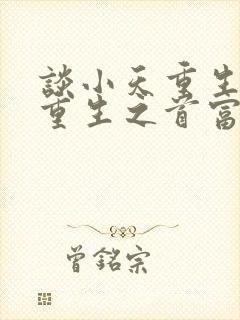 談小天重生
重生之首富
曾銘宗